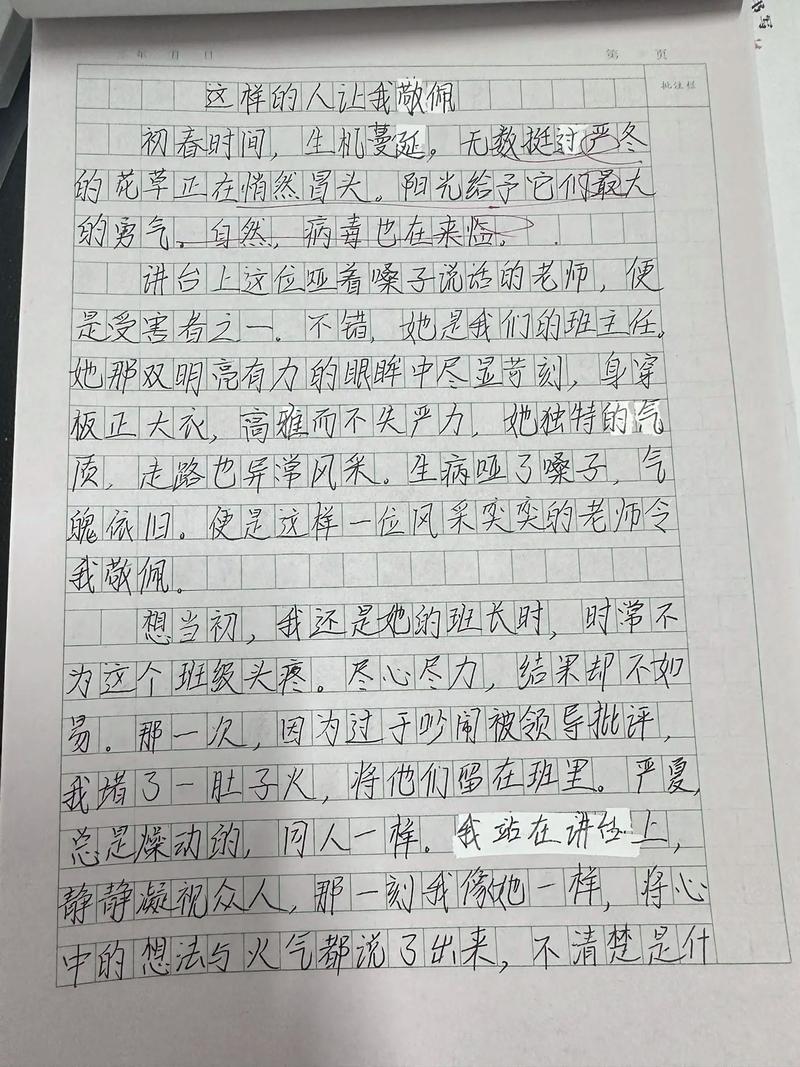 年 月 日 第 页
批注栏
这样的人让我敬佩
初春时间，生机蔓延。无数挺过严冬
的花草正在悄然冒头。阳光给予它们最大
的勇气。自然，病毒也在来临。
讲台上这位哑着嗓子说话的老师，便
是受害者之一。不错，她是我们的班主任。
她那双明亮有力的眼眸中尽显苛刻，身穿
板正大衣，高雅而不失严力，她独特的气
质，走路也异常风采。生病哑了嗓子，气
魄依旧。便是这样一位风采奕奕的老师令
我敬佩。
想当初，我还是她的班长时，时常不
为这个班级头疼。尽心尽力，结果却不如
易。那一次，因为过于吵闹被领导批评，
我堵了一肚子火，将他们留在班里。严夏，
总是燥动的，同人一样。我站在讲台上，
静静凝视众人，那一刻我像她一样，将心
中的想法与火气都说了出来，不清楚是什